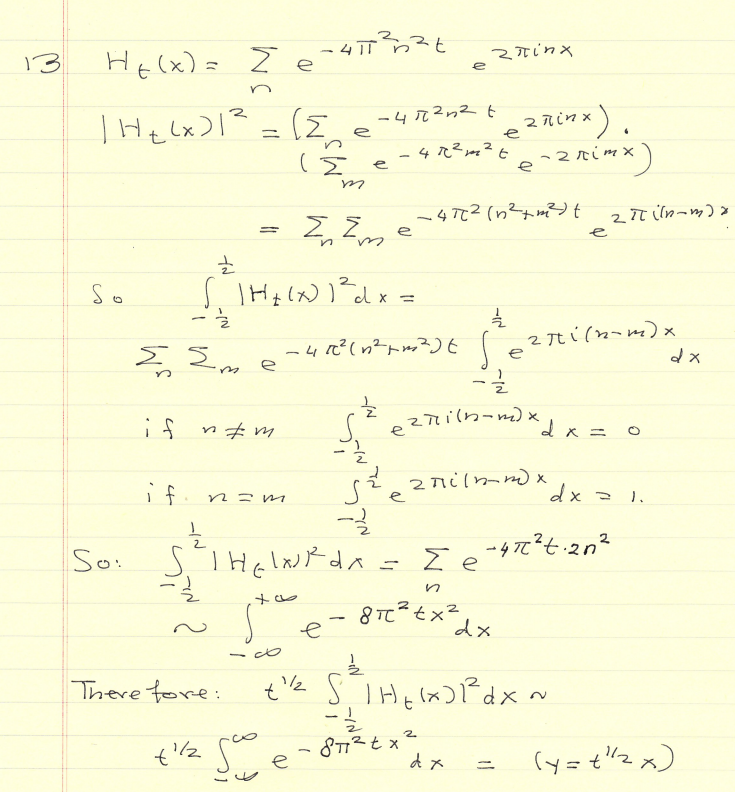 13 H_t(x) = Σ_n e^{-4π²n²t} e^{2πinx}
|H_t(x)|² = (Σ_n e^{-4π²n²t} e^{2πinx}) ·
(Σ_m e^{-4π²m²t} e^{-2πimx})
= Σ_n Σ_m e^{-4π²(n²+m²)t} e^{2πi(n-m)x}.
So ∫_{-1/2}^{1/2} |H_t(x)|² dx =
Σ_n Σ_m e^{-4π²(n²+m²)t} ∫_{-1/2}^{1/2} e^{2πi(n-m)x} dx
if n ≠ m ∫_{-1/2}^{1/2} e^{2πi(n-m)x} dx = 0
if n = m ∫_{-1/2}^{1/2} e^{2πi(n-m)x} dx = 1.
So: ∫_{-1/2}^{1/2} |H_t(x)|² dx = Σ_n e^{-4π²t·2n²}
~ ∫_{-∞}^{+∞} e^{-8π²tx²} dx
Therefore: t^{1/2} ∫_{-1/2}^{1/2} |H_t(x)|² dx ~
t^{1/2} ∫_{-∞}^{∞} e^{-8π²tx²} dx = (y = t^{1/2} x)